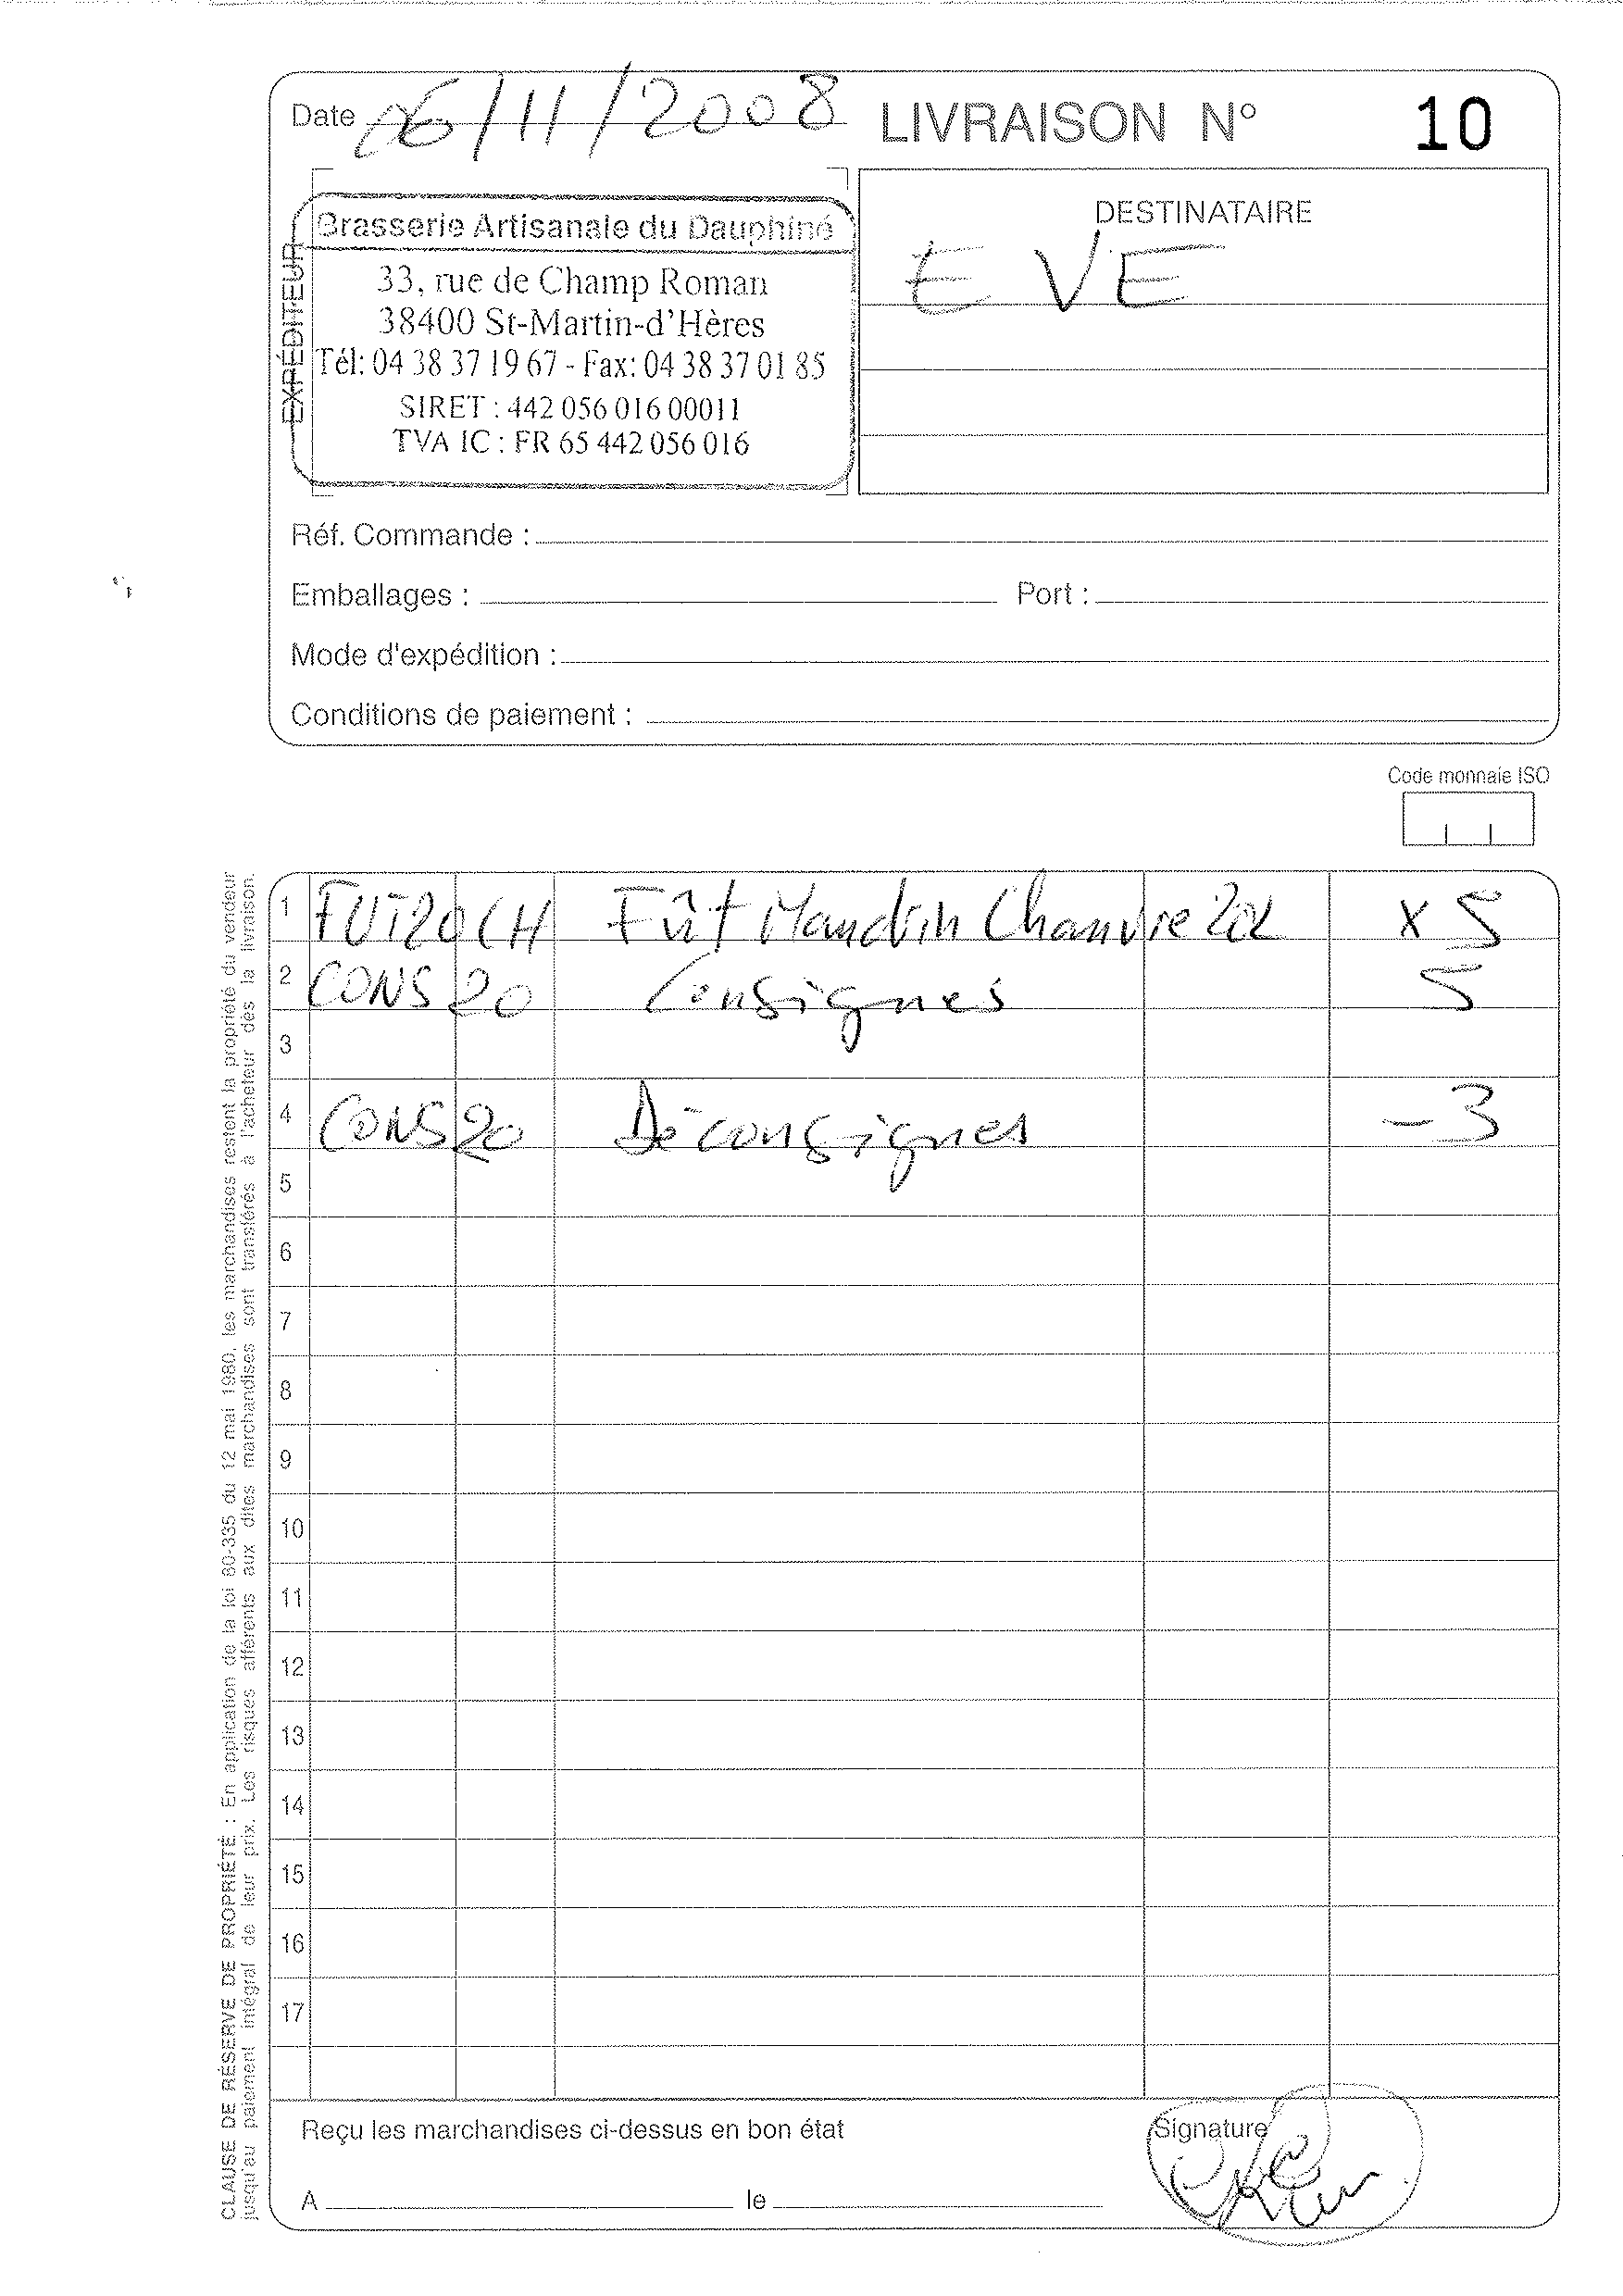 Date 06/11/2008 LIVRAISON N° 10
EXPÉDITEUR
Brasserie Artisanale du Dauphiné
33, rue de Champ Roman
38400 St-Martin-d'Hères
Tél: 04 38 37 19 67 - Fax: 04 38 37 01 85
SIRET : 442 056 016 00011
TVA IC : FR 65 442 056 016
DESTINATAIRE
EVE
Réf. Commande :
Emballages : Port :
Mode d'expédition :
Conditions de paiement :
Code monnaie ISO
1 FUT20CH Fût Mandrin Chanvre 20L x 5
2 CONS20 Consignes 5
3
4 CONS20 Déconsignes -3
5
6
7
8
9
10
11
12
13
14
15
16
17
Reçu les marchandises ci-dessus en bon état
Signature
A le
CLAUSE DE RÉSERVE DE PROPRIÉTÉ : En application de la loi 80-335 du 12 mai 1980, les marchandises restent la propriété du vendeur
jusqu'au paiement intégral de leur prix. Les risques afférents aux dites marchandises sont transférés à l'acheteur dès la livraison.